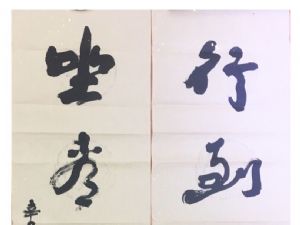 行到
坐看